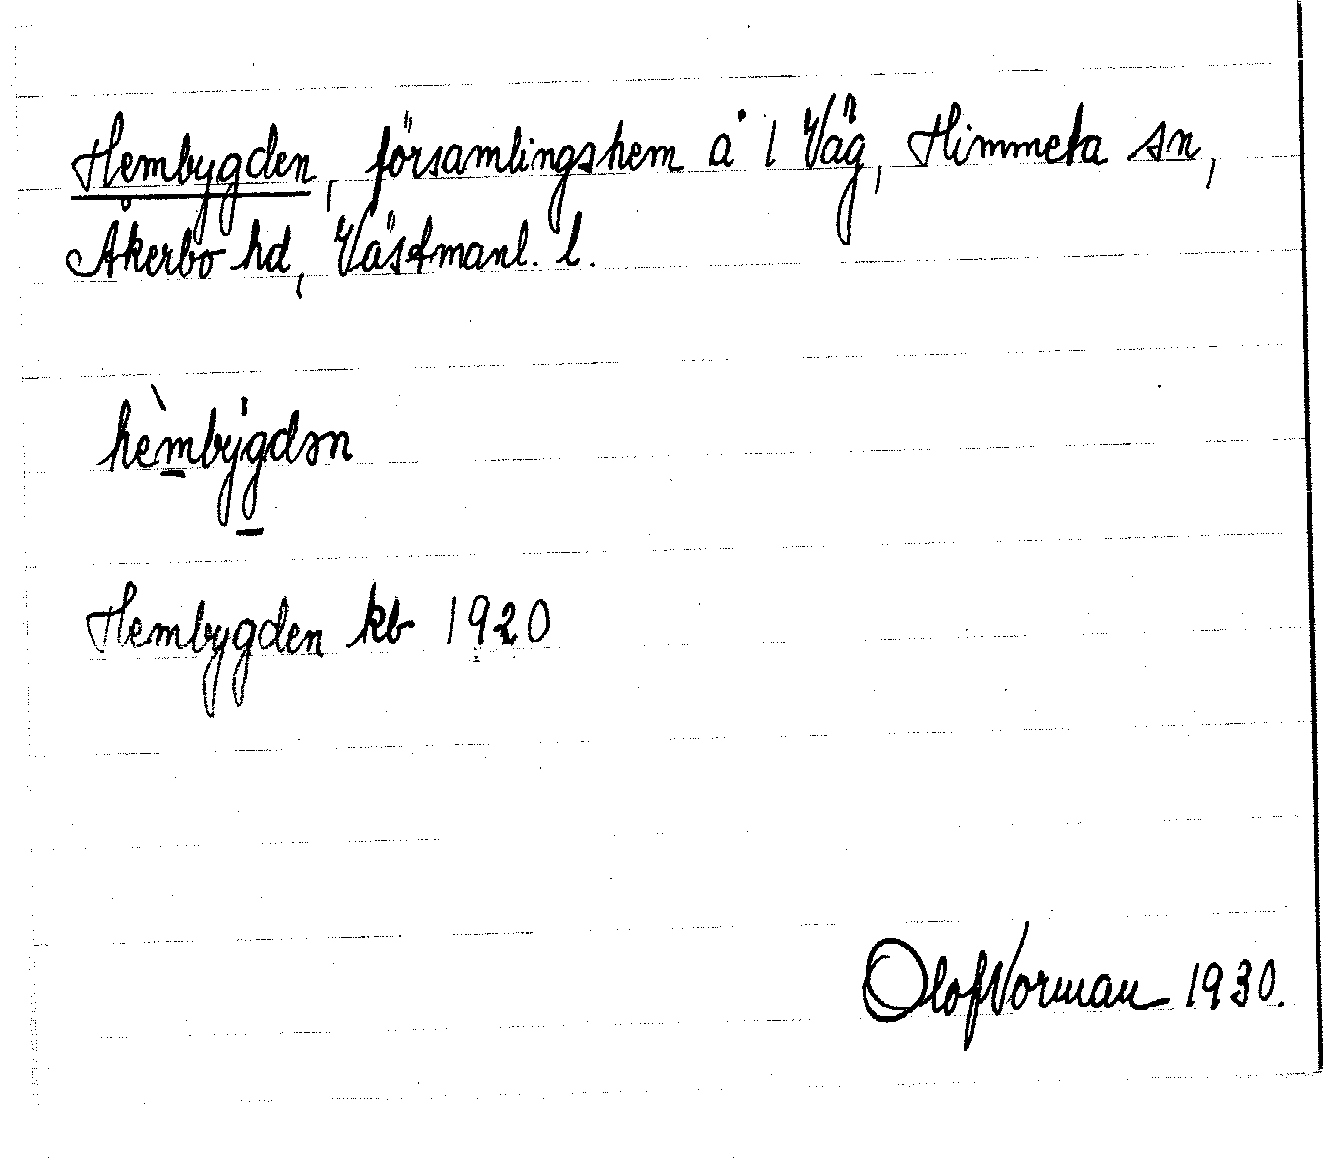 Hembygden, församlingshem å 1 Väg, Himmeta sn,
Åkerbo hd, Västmanl. l.
hèmbýgdən
Hembygden kb 1920
Olof Norman 1930.